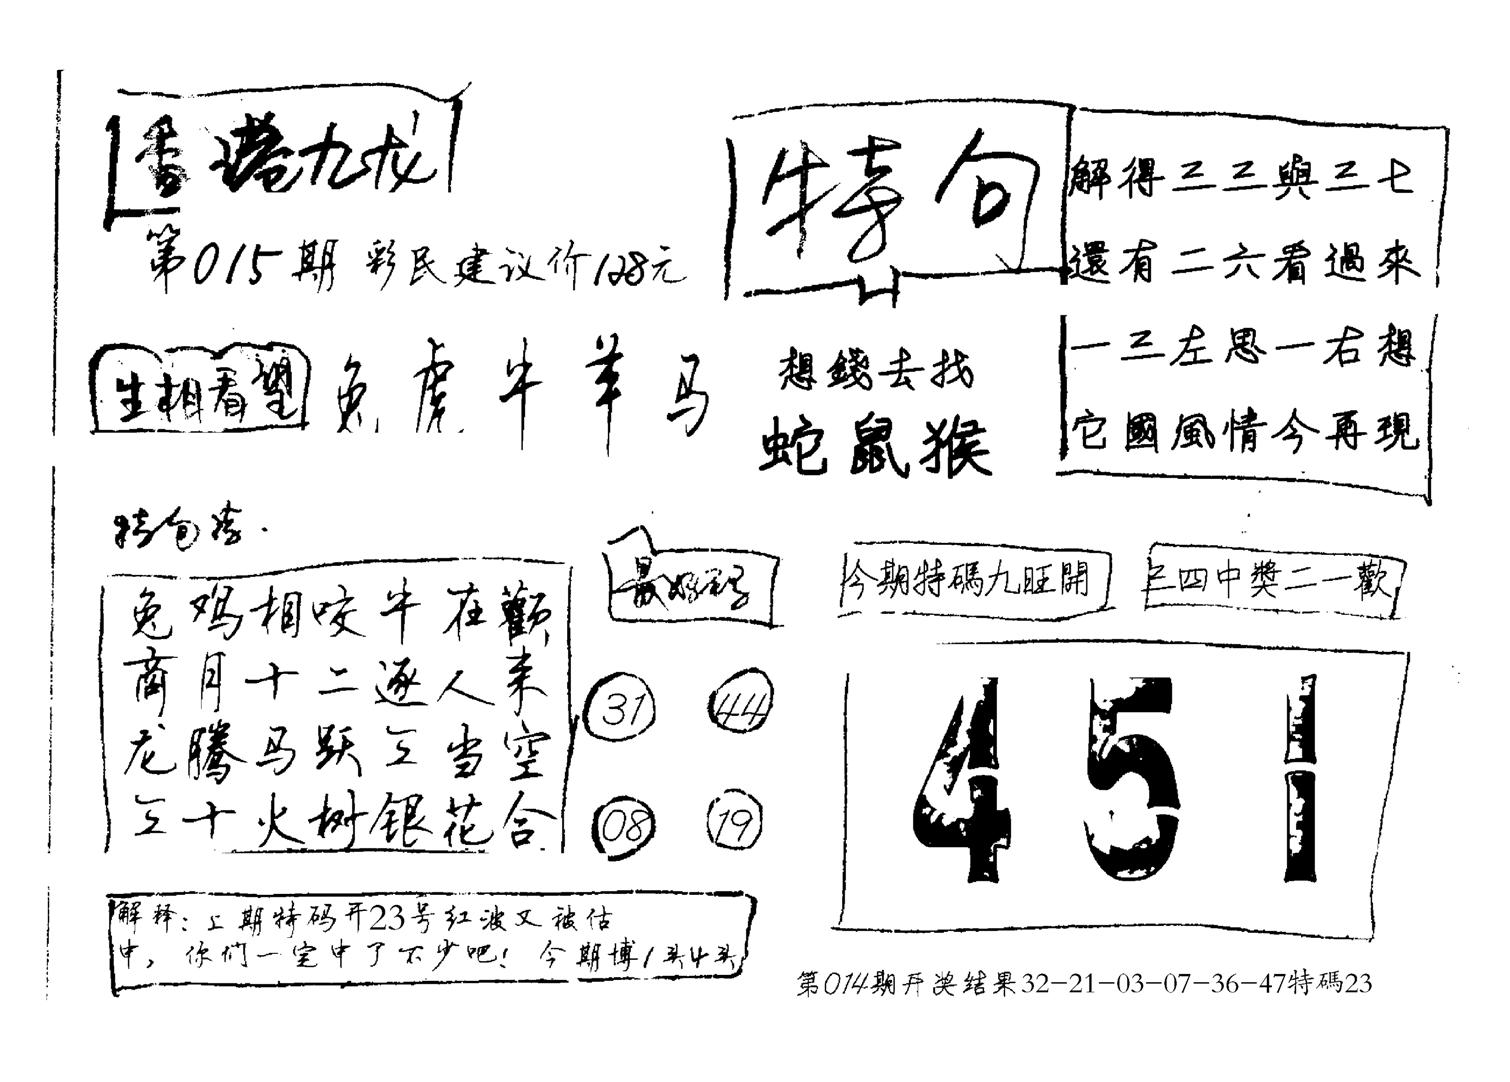 香港九龙
第015期 彩民建议价128元
特句
解得三三與三七
還有二六看過來
一三左思一右想
它國風情今再現
生相看望 兔虎牛羊马
想錢去找
蛇鼠猴
兔鸡相咬牛在
商月十二逐人来
龙腾马跃三当空
三十火树银花合
31 44
08 19
今期特碼九旺開
三四中獎二一歡
451
解释：上期特码开23号红波又被估
中，你们一定中了不少吧！今期博1头4头
第014期开奖结果32-21-03-07-36-47特碼23